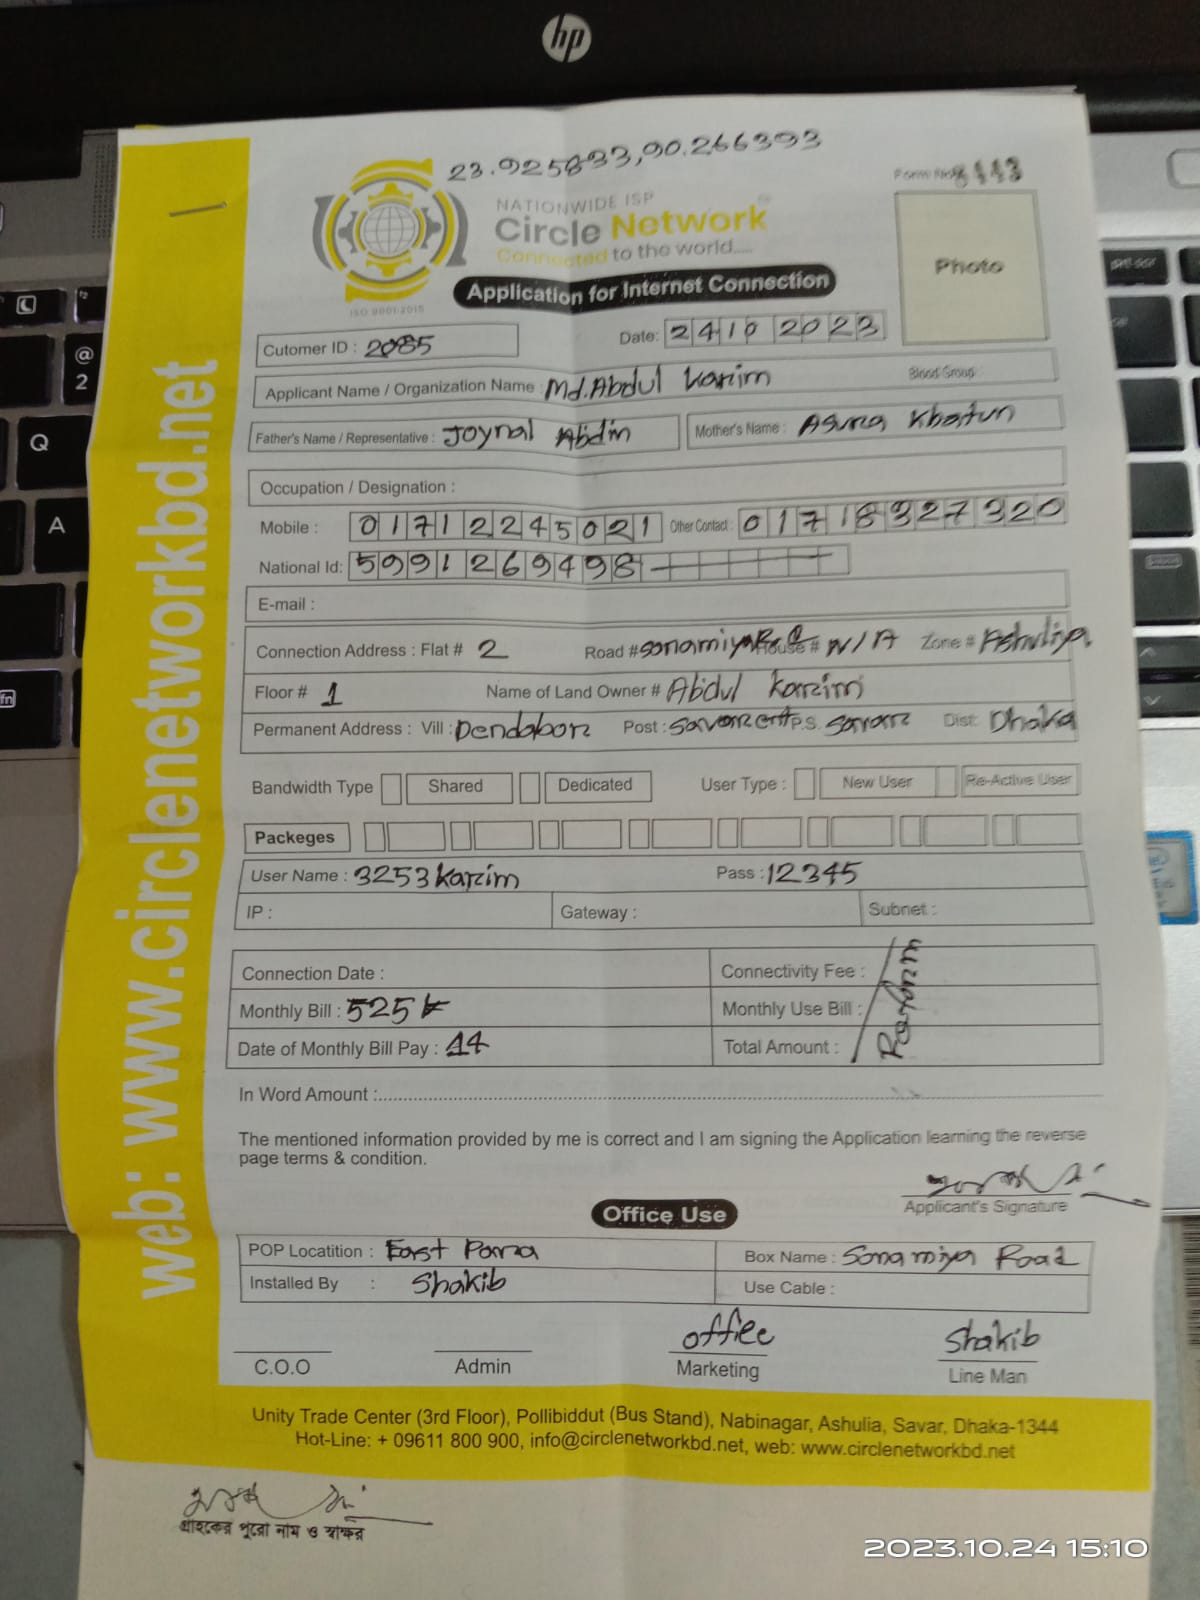 hp
23.925833,90.266393
Form No 8443
NATIONWIDE ISP
Circle Network
Connected to the world.....
ISO 9001:2015
Photo
Application for Internet Connection
Cutomer ID : 2085
Date: 24 10 2023
Applicant Name / Organization Name : Md. Abdul Karim
Blood Group :
Father's Name / Representative : Joynal Abdin
Mother's Name : Asma Khatun
Occupation / Designation :
Mobile : 01712245021 Other Contact : 01718327320
National Id: 5991269498
E-mail :
Connection Address : Flat # 2 Road # Sonamiya Rd House # N/A Zone # Ashuliya
Floor # 1 Name of Land Owner # Abdul Karim
Permanent Address : Vill : Dendabor Post : Savar Cant P.S. Savar Dist: Dhaka
Bandwidth Type Shared Dedicated User Type : New User Re-Active User
Packeges
User Name : 3253karim Pass : 12345
IP : Gateway : Subnet :
Connection Date : Connectivity Fee :
Monthly Bill : 525 Monthly Use Bill :
Date of Monthly Bill Pay : 14 Total Amount :
In Word Amount :
The mentioned information provided by me is correct and I am signing the Application learning the reverse
page terms & condition.
Applicant's Signature
Office Use
POP Locatition : East Para Box Name : Sonamiya Road
Installed By : Shakib Use Cable :
office Shakib
C.O.O Admin Marketing Line Man
Unity Trade Center (3rd Floor), Pollibiddut (Bus Stand), Nabinagar, Ashulia, Savar, Dhaka-1344
Hot-Line: + 09611 800 900, info@circlenetworkbd.net, web: www.circlenetworkbd.net
web: www.circlenetworkbd.net
গ্রাহকের পুরো নাম ও স্বাক্ষর
2023.10.24 15:10